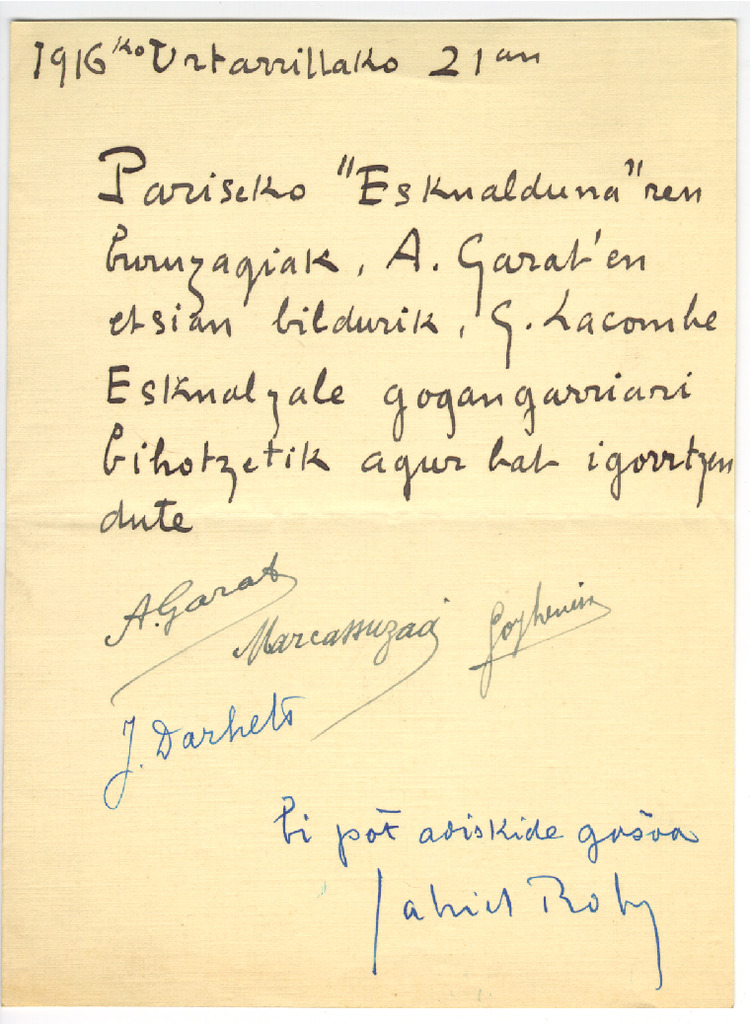 1916ko Urtarrillako 21an
Pariseko "Eskualduna"ren
buruzagiak, A. Garat'en
etsian bildurik, G. Lacombe
Eskualzale gogangarriari
bihotzetik agur bat igorrtzen
dute
A. Garat
Marcassuzaa
Goyhenix
J. Darhets
bi pot̃ adiskide gošoa